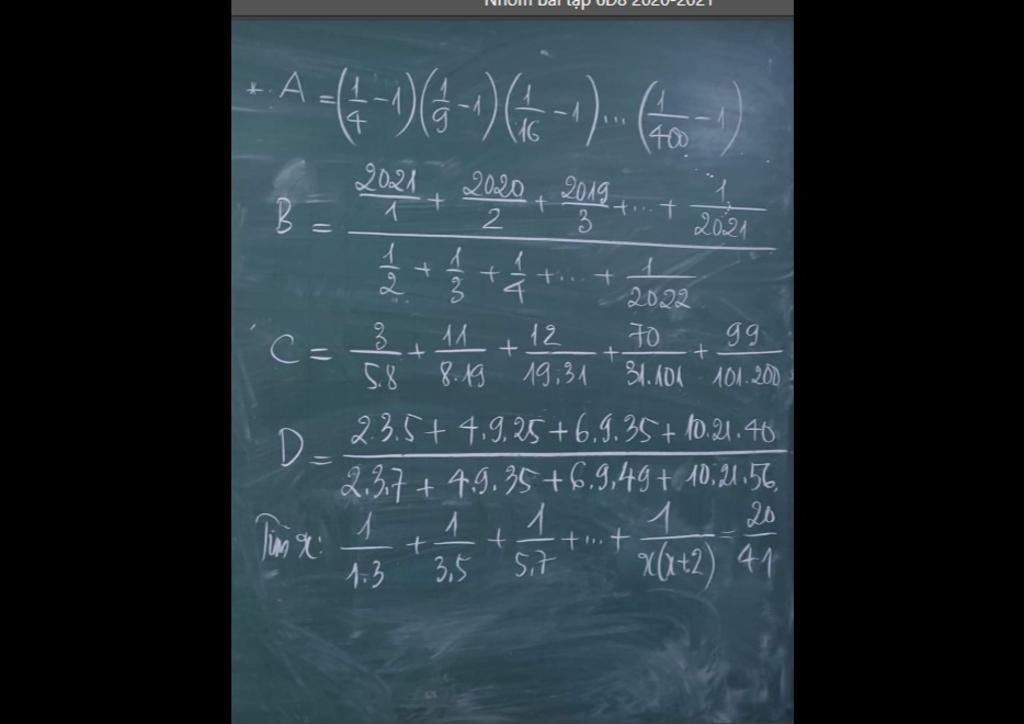 Nhóm bài tập 6D8 2020-2021
*. A = (1/4 - 1)(1/9 - 1)(1/16 - 1)...(1/400 - 1)
B = (2021/1 + 2020/2 + 2019/3 + ... + 1/2021) / (1/2 + 1/3 + 1/4 + ... + 1/2022)
C = 3/5.8 + 11/8.19 + 12/19.31 + 70/31.101 + 99/101.200
D = (2.3.5 + 4.9.25 + 6.9.35 + 10.21.40) / (2.3.7 + 4.9.35 + 6.9.49 + 10.21.56)
Tìm x: 1/1.3 + 1/3.5 + 1/5.7 + ... + 1/x(x+2) = 20/41